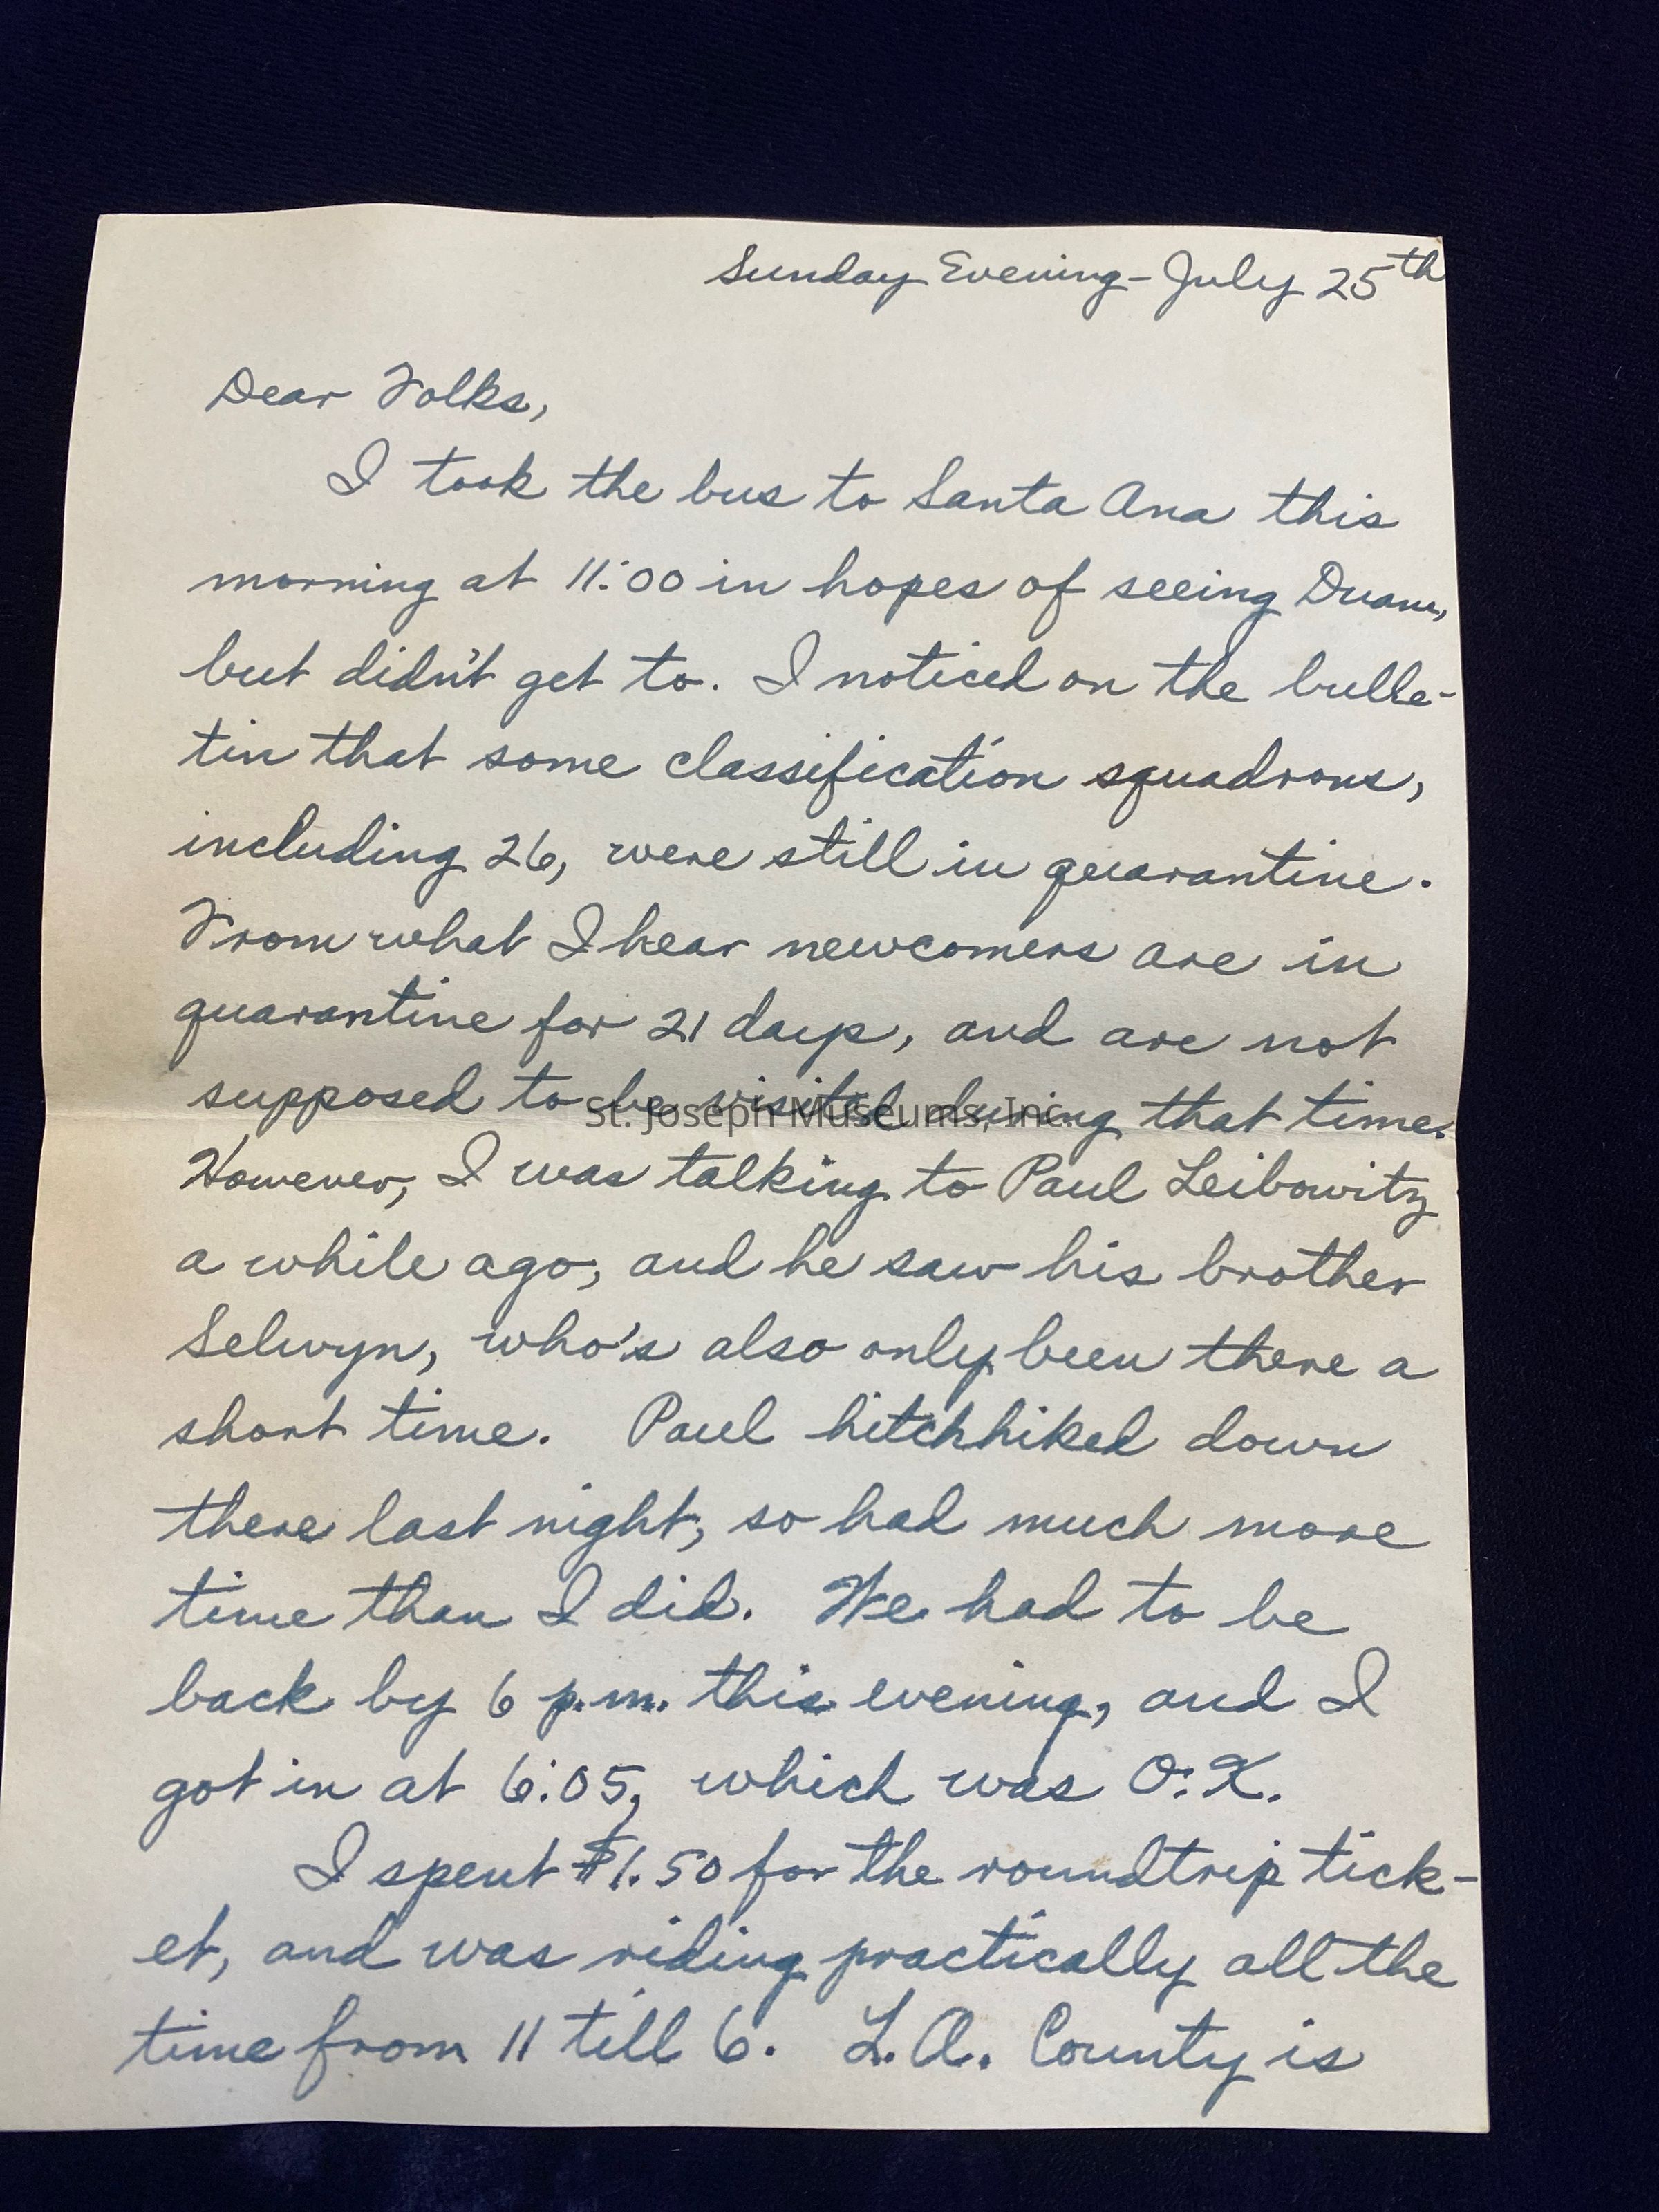 Sunday Evening - July 25th
Dear Folks,
I took the bus to Santa Ana this
morning at 11:00 in hopes of seeing Duane,
but didn't get to. I noticed on the bulle-
tin that some classification squadrons,
including 26, were still in quarantine.
From what I hear newcomers are in
quarantine for 21 days, and are not
supposed to be visited during that time.
St. Joseph Museums, Inc.
However, I was talking to Paul Leibowitz
a while ago, and he saw his brother
Selwyn, who's also only been there a
short time. Paul hitchhiked down
there last night, so had much more
time than I did. We had to be
back by 6 p.m. this evening, and I
got in at 6:05, which was O.K.
I spent $1.50 for the roundtrip tick-
et, and was riding practically all the
time from 11 till 6. L.A. County is